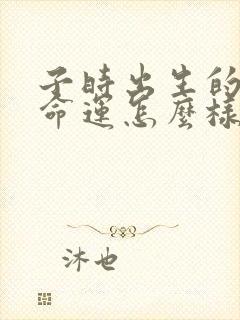 子時出生的
命運怎麼樣
沐也